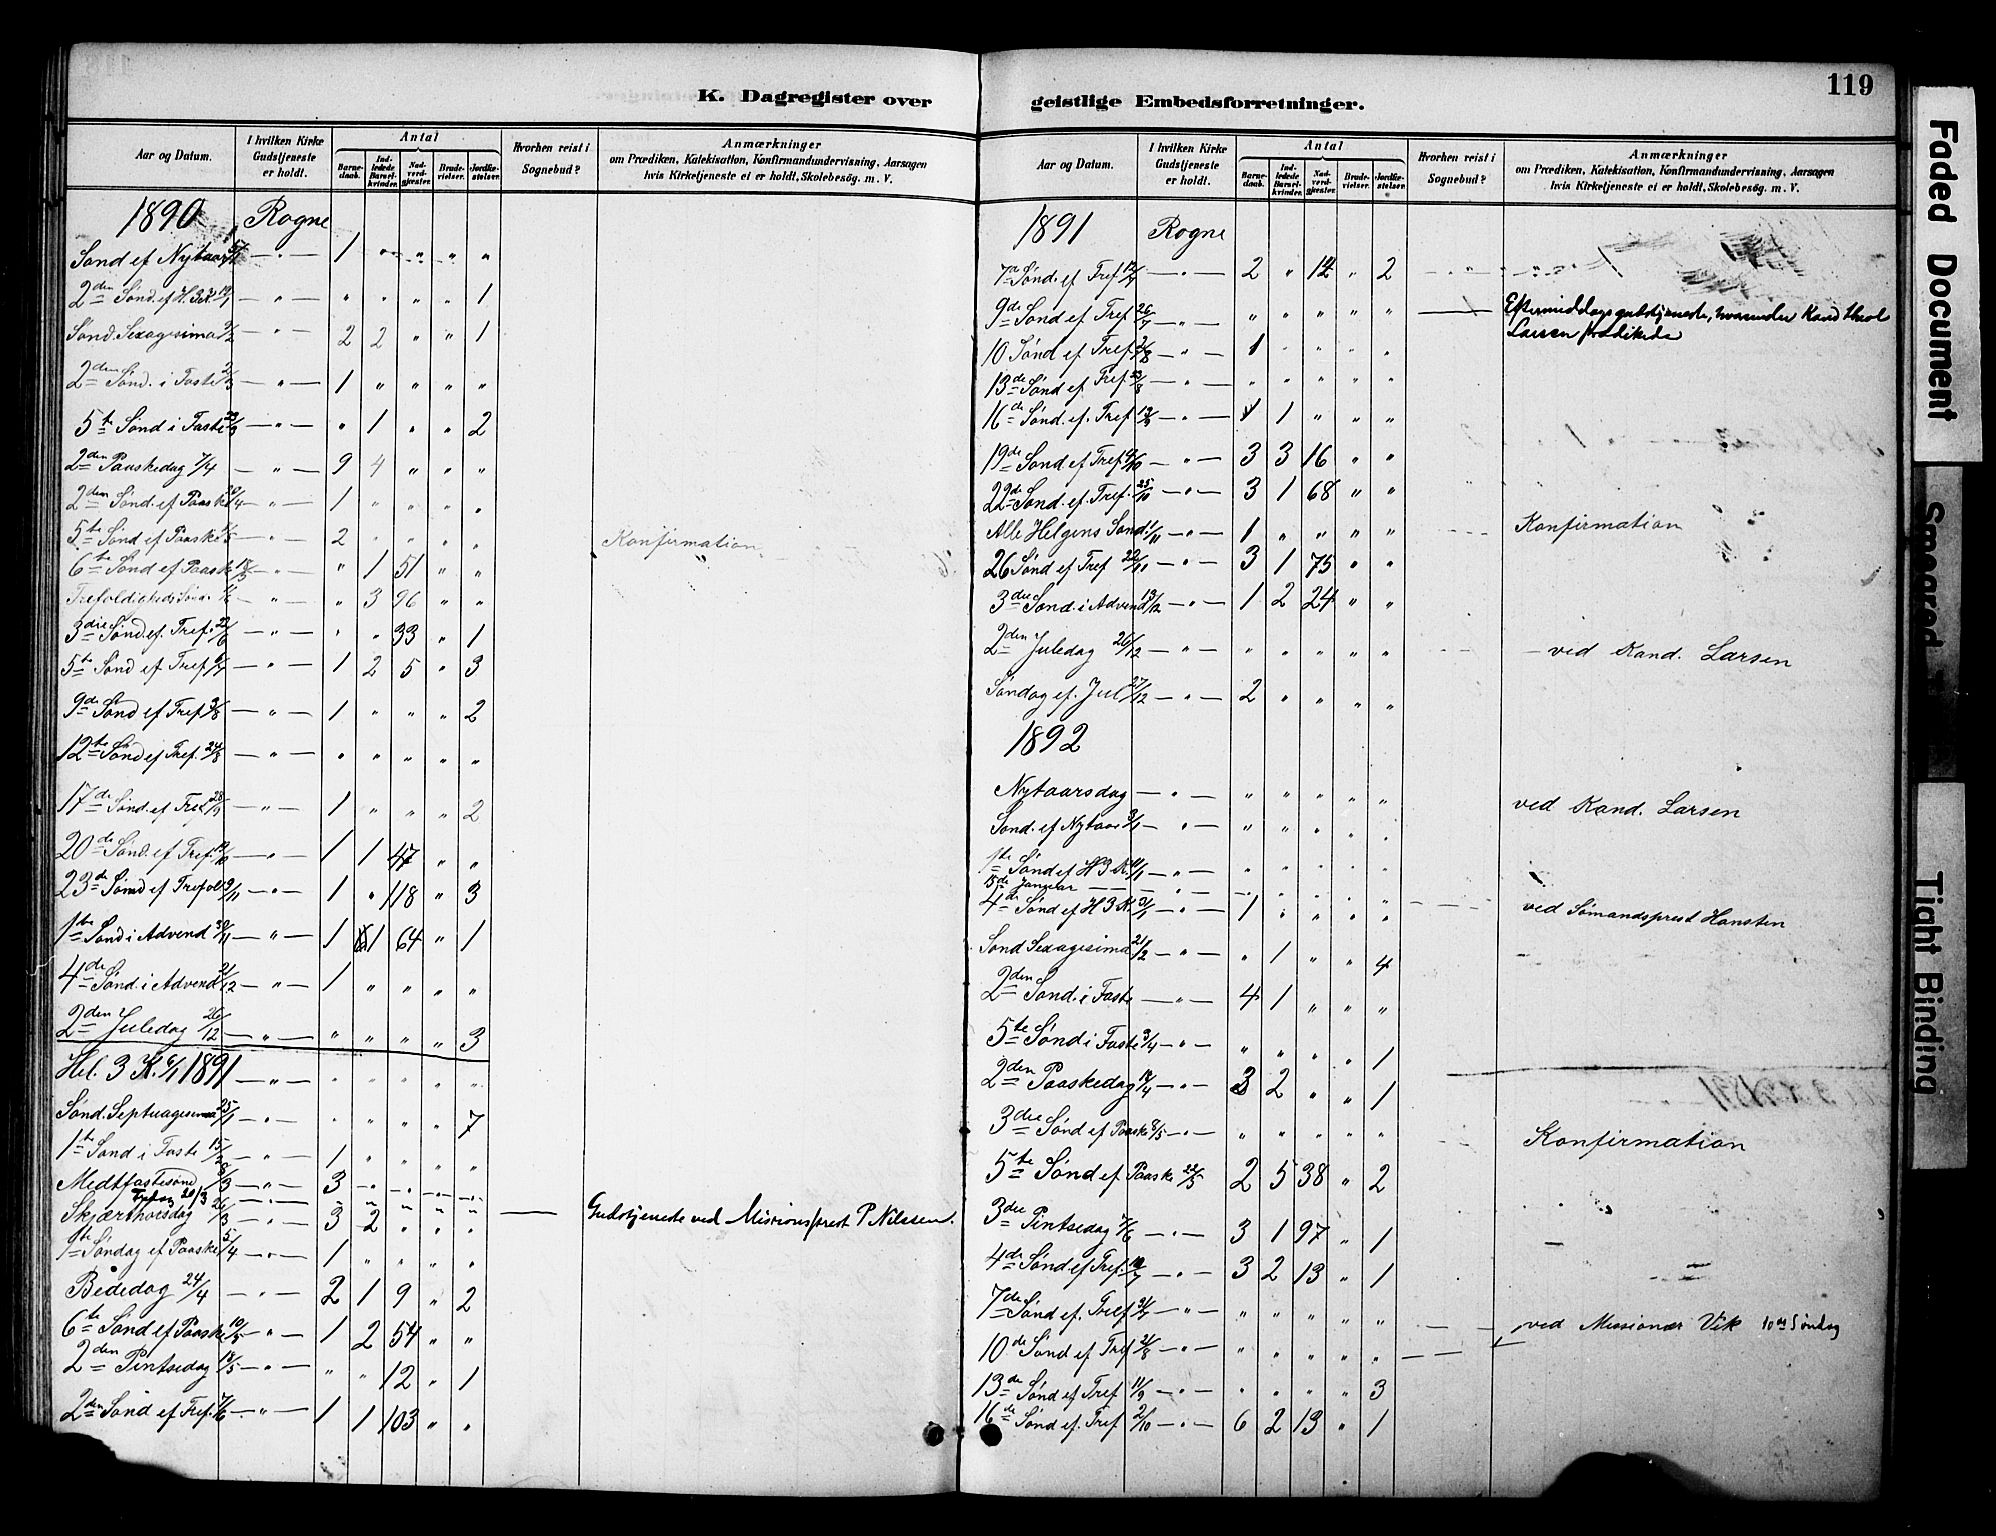 119
K. Dagregister over
Aar og Datum. I hvilken Kirke Gudstjeneste er holdt. Antal Barnedaab. Indledede Barselkvinder. Nadverdgjester. Brudevielser. Jordfæstelser. Hvorhen reist i Sognebud? Anmærkninger om Prædiken, Katekisation, Konfirmandundervisning, Aarsagen hvis Kirketjeneste ei er holdt, Skolebesøg. m. V.
1890 Rogne
Sønd ef Nytaar 5/1 — " — 1 " " " "
2den Sønd. ef H. 3 K 19/1 — " — " " " " 1
Sønd. Sexagesima 9/2 — " — 2 2 " " 1
2den Sønd. i Faste 2/3 — " — 1 " " " "
5te Sønd i Faste 23/3 — " — " 1 " " 2
2den Paaskedag 7/4 — " — 9 4 " " "
2den Sønd. ef Paaske 20/4 — " — 1 " " " "
5te Sønd ef Paaske — " — 2 " " " " Konfirmation
6te Sønd ef Paaske 18/5 — " — " 1 51 " "
Trefoldigheds Sønd. 1/6 — " — " 3 96 " "
3die Sønd. ef. Tref. 22/6 — " — " " 33 " 1
5te Sønd ef Tref 6/7 — " — 1 2 5 " 3
9de Sønd ef Tref 3/8 — " — 1 " " " 2
12te Sønd ef Tref. 24/8 — " — " " " " "
17de Sønd. ef Tref 28/9 — " — 1 " " " 2
20de Sønd. ef Tref. 19/10 — " — 1 1 47 " "
23de Sønd ef Trefol 9/11 — " — 1 " 118 " 3
1ste Sønd i Advend 30/11 — " — 1 1 64 " 1
4de Sønd. i Advend 21/12 — " — 1 " " " "
2den Juledag 26/12 — " — " " " " 3
Hel. 3 K. 6/1 1891 — " — " " " " "
Sønd. Septuagesima 25/1 — " — " " " " 7
1ste Sønd i Faste 15/2 — " — 1 " " " "
Medtfastesønd 8/3 — " — 3 " " " "
20/3 — " — " " " " "
Skjærthorsdag 26/3 — " — 3 2 " " " — Gudstjeneste ved Missionsprest P Nilssen.
1ste Søndag ef Paaske 5/4 — " — 1 " " " "
Bededag 24/4 — " — 2 1 9 " 2
6te Sønd ef Paaske 10/5 — " — 1 2 54 " "
2den Pintsedag 18/5 — " — " " 12 " 1
2den Sønd ef Tref. 7/6 — " — 1 1 103 " "
geistlige Embedsforretninger.
Aar og Datum. I hvilken Kirke Gudstjeneste er holdt. Antal Barnedaab. Indledede Barselkvinder. Nadverdgjester. Brudevielser. Jordfæstelser. Hvorhen reist i Sognebud? Anmærkninger om Prædiken, Katekisation, Konfirmandundervisning, Aarsagen hvis Kirketjeneste ei er holdt, Skolebesøg. m. V.
1891 Rogne
7de Sønd. ef Tref 12/7 — " — 2 " 14 " 2
9de Sønd ef Tref 26/7 — " — " " " " " — Eftermiddagsgudstjeneste, hvorunder Kand theol
Larsen prædikede
10 Sønd ef Tref 2/8 — " — 1 " " " "
13de Sønd ef Tref 23/8 — " — " " " " "
16de Sønd ef. Tref 13/9 — " — 1 1 " " "
19de Sønd ef Tref 4/10 — " — 3 3 16 " "
22de Sønd. ef. Tref. 25/10 — " — 3 1 68 " "
Alle Helgens Sønd 1/11 — " — 1 " " " " Konfirmation
26 Sønd ef Tref 22/11 — " — 3 1 75 " "
3die Sønd. i Advend 13/12 — " — 1 2 24 " "
2den Juledag 26/12 — " — " " " " " — ved Kand. Larsen
Søndag ef. Jul 27/12 — " — 2 " " " "
1892
Nytaarsdag — " — " " " " " ved Kand. Larsen
Sønd. ef Nytaar 3/1 — " — " " " " "
1ste Sønd ef H 3 K. — " — " " " " "
15de Januar — " — " " " " "
4de Sønd ef H 3 K. 31/1 — " — 1 " " " " ved Sømandsprest Hansten
Sønd Sexagesima 21/2 — " — " 1 " " 4
2den Sønd. i Faste — " — 4 1 " " "
5te Sønd i Faste 3/4 — " — " " " " 1
2den Paaskedag 18/4 — " — 3 2 " " 1
3die Sønd ef Paaske 8/5 — " — " " " " " Konfirmation
5te Sønd ef Paaske 22/5 2 5 38 " 2
3die Pintsedag 7/6 — " — 3 1 97 " 1
4de Sønd ef Tref. 10/7 — " — 3 2 13 " 1
7de Sønd ef. Tref 31/7 — " — " " " " " — ved Missionær Vik 10de Søndag
10de Sønd ef Tref 21/8 — " — " " " " " —
13de Sønd ef Tref 11/9 — " — " " " " 3
16de Sønd ef. Tref 2/10 — " — 6 2 13 " 1
Faded Document
Smeared
Tight Binding